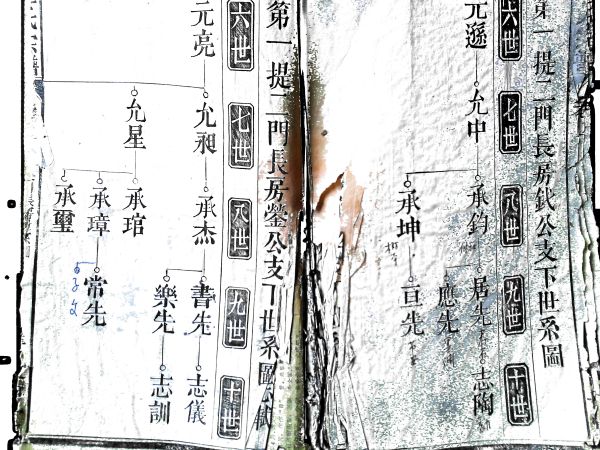 第一提二門長房鈛公支下世系圖
六世
七世
八世
九世
十世
元遜
允中
承鈞
承坤
居先
應先
亘先
志陶
第一提二門長房瑩公支下世系圖
六世
七世
八世
九世
十世
元亮
允昶
允星
承杰
承琯
承璋
承璽
書先
樂先
常先
志儀
志訓